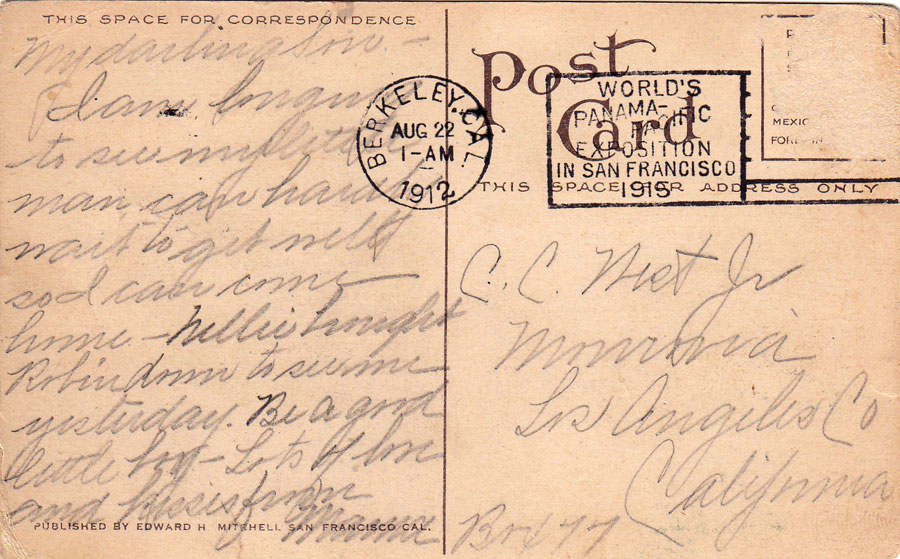 THIS SPACE FOR CORRESPONDENCE
My darling Son —
I am longing
to see my little
man can hardly
wait to get well
so I can come
home — Nellie brought
Robin down to see me
yesterday. Be a good
little boy — Lots of love
and kisses from
Mama
PUBLISHED BY EDWARD H. MITCHELL, SAN FRANCISCO, CAL.
Post
Card
THIS SPACE FOR ADDRESS ONLY
BERKELEY, CAL.
AUG 22
1-AM
1912
WORLD'S
PANAMA-
PACIFIC
EXPOSITION
IN SAN FRANCISCO
1915
MEXIC
C. C. West Jr
Monrovia
Los Angeles Co
California
Box 77